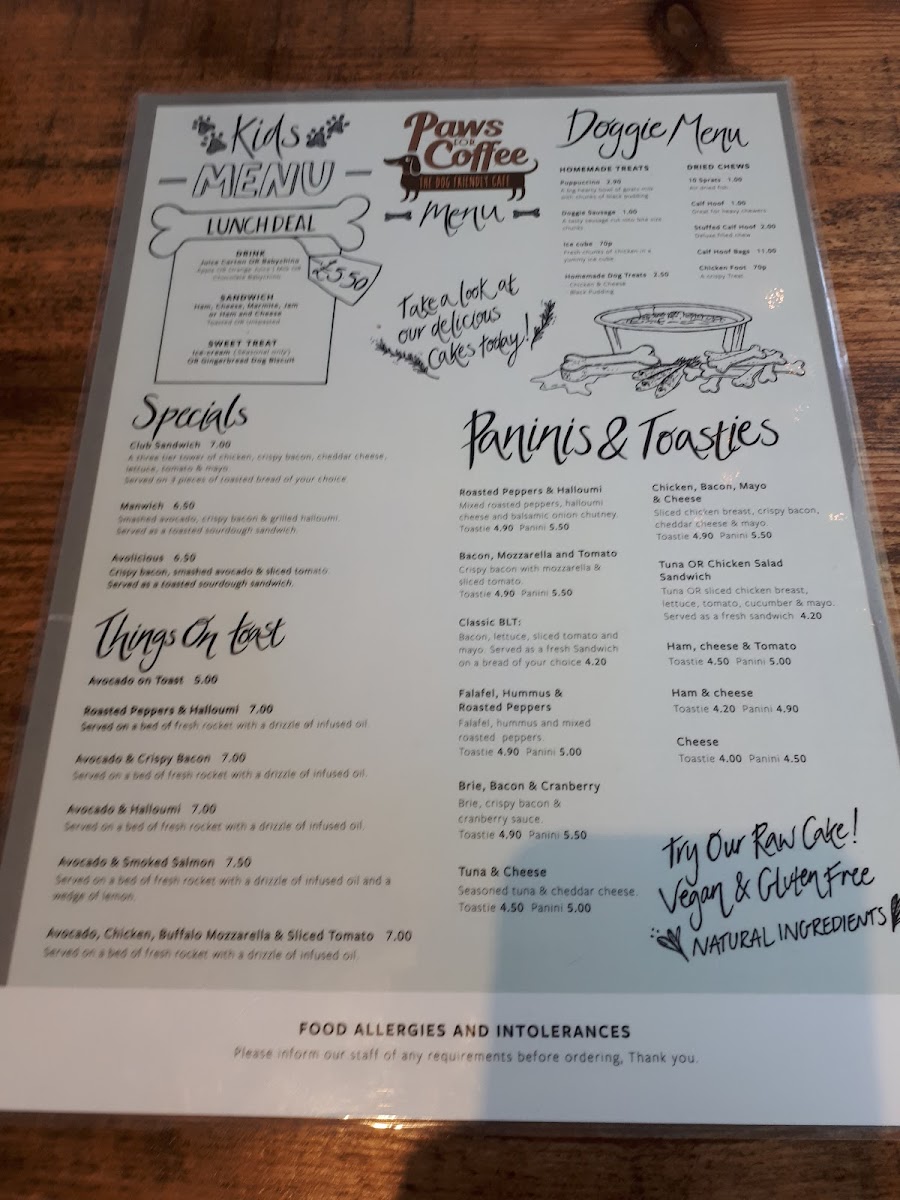 Kids
MENU
LUNCH DEAL
£5.50
DRINK
Juice Carton OR Babychino
Apple OR Orange Juice | Milk OR
Chocolate Babychino
SANDWICH
Ham, Cheese, Marmite, Jam
or Ham and Cheese
Toasted OR Untoasted
SWEET TREAT
Ice-cream (Seasonal only)
OR Gingerbread Dog Biscuit
Paws
FOR
Coffee
THE DOG FRIENDLY CAFE
Menu
Take a look at
our delicious
cakes today!
Doggie Menu
HOMEMADE TREATS
Puppuccino 2.90
A big hearty bowl of goats milk
with chunks of black pudding
Doggie Sausage 1.00
A tasty sausage cut into bite size
chunks
Ice cube 70p
Fresh chunks of chicken in a
yummy ice cube
Homemade Dog Treats 2.50
Chicken & Cheese
Black Pudding
DRIED CHEWS
10 Sprats 1.00
Air dried fish
Calf Hoof 1.00
Great for heavy chewers
Stuffed Calf Hoof 2.00
Deluxe filled chew
Calf Hoof Bags 11.00
Chicken Foot 70p
A crispy Treat
Specials
Club Sandwich 7.00
A three tier tower of chicken, crispy bacon, cheddar cheese,
lettuce, tomato & mayo.
Served on 3 pieces of toasted bread of your choice.
Manwich 6.50
Smashed avocado, crispy bacon & grilled halloumi.
Served as a toasted sourdough sandwich.
Avolicious 6.50
Crispy bacon, smashed avocado & sliced tomato.
Served as a toasted sourdough sandwich.
Things On toast
Avocado on Toast 5.00
Roasted Peppers & Halloumi 7.00
Served on a bed of fresh rocket with a drizzle of infused oil.
Avocado & Crispy Bacon 7.00
Served on a bed of fresh rocket with a drizzle of infused oil.
Avocado & Halloumi 7.00
Served on a bed of fresh rocket with a drizzle of infused oil.
Avocado & Smoked Salmon 7.50
Served on a bed of fresh rocket with a drizzle of infused oil and a
wedge of lemon.
Avocado, Chicken, Buffalo Mozzarella & Sliced Tomato 7.00
Served on a bed of fresh rocket with a drizzle of infused oil.
Paninis & Toasties
Roasted Peppers & Halloumi
Mixed roasted peppers, halloumi
cheese and balsamic onion chutney.
Toastie 4.90 Panini 5.50
Bacon, Mozzarella and Tomato
Crispy bacon with mozzarella &
sliced tomato.
Toastie 4.90 Panini 5.50
Classic BLT:
Bacon, lettuce, sliced tomato and
mayo. Served as a fresh Sandwich
on a bread of your choice 4.20
Falafel, Hummus &
Roasted Peppers
Falafel, hummus and mixed
roasted peppers.
Toastie 4.90 Panini 5.00
Brie, Bacon & Cranberry
Brie, crispy bacon &
cranberry sauce.
Toastie 4.90 Panini 5.50
Tuna & Cheese
Seasoned tuna & cheddar cheese.
Toastie 4.50 Panini 5.00
Chicken, Bacon, Mayo
& Cheese
Sliced chicken breast, crispy bacon,
cheddar cheese & mayo.
Toastie 4.90 Panini 5.50
Tuna OR Chicken Salad
Sandwich
Tuna OR sliced chicken breast,
lettuce, tomato, cucumber & mayo.
Served as a fresh sandwich 4.20
Ham, cheese & Tomato
Toastie 4.50 Panini 5.00
Ham & cheese
Toastie 4.20 Panini 4.90
Cheese
Toastie 4.00 Panini 4.50
Try Our Raw Cake!
Vegan & Gluten Free
NATURAL INGREDIENTS
FOOD ALLERGIES AND INTOLERANCES
Please inform our staff of any requirements before ordering, Thank you.